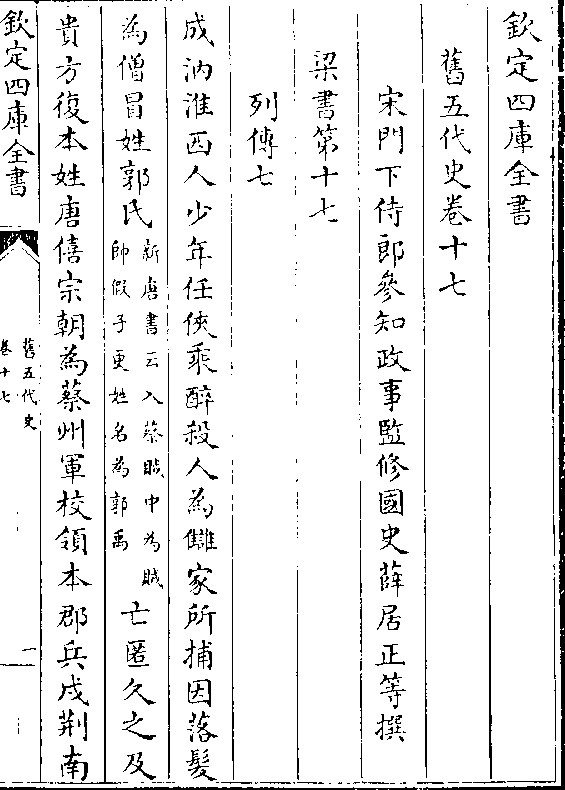 欽定四庫全書
舊五代史卷十七
宋門下侍郎參知政事監修國史薛居正等撰
梁書第十七
列傳七
成汭淮西人少年任俠乘醉殺人為讎家所捕因落髮
為僧冒姓郭氏新唐書云入蔡賊中為賊帥假子更姓名為郭禹亡匿久之及
貴方復本姓唐僖宗朝為蔡州軍校領本郡兵戍荆南
欽定四庫全書
舊五代史
卷十七
一